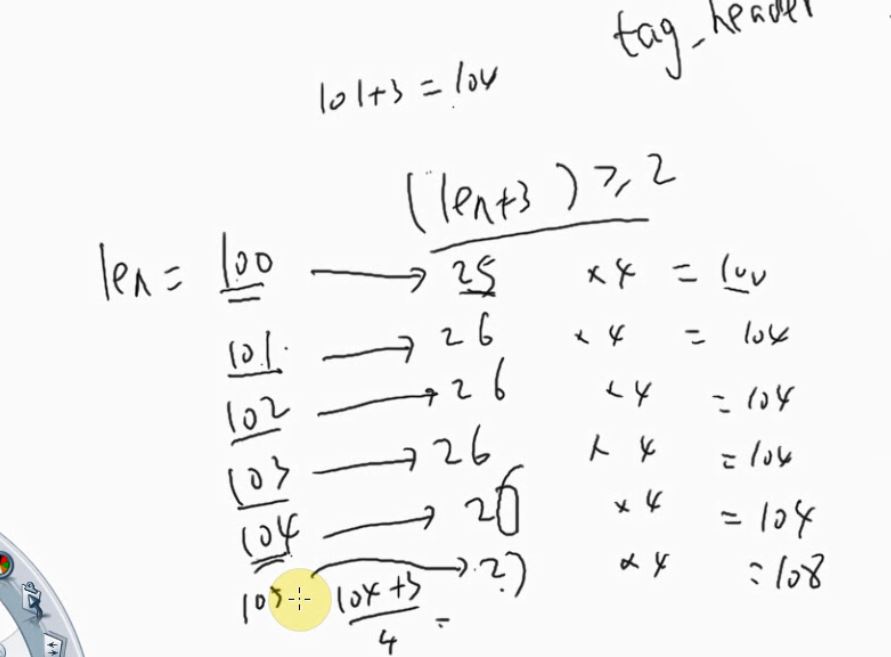 tag_header
101+3 = 104
(len+3) >, 2
len = 100 → 25 × 4 = 100
101. → 26 × 4 = 104
102 → 26 × 4 = 104
103 → 26 × 4 = 104
104 → 26 × 4 = 104
105 → 27 × 4 = 108
104+3
4 =